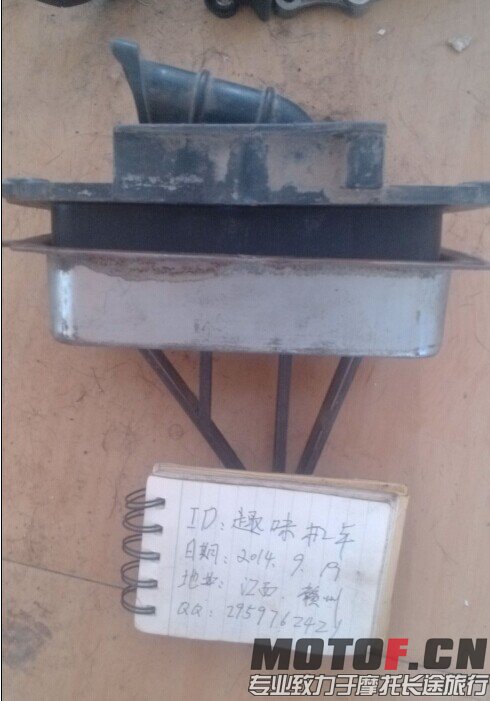 ID: 趣味机车
日期: 2014. 9. 19
地址: 江西. 赣州
QQ: 2959762429
MOTOF.CN
专业致力于摩托长途旅行